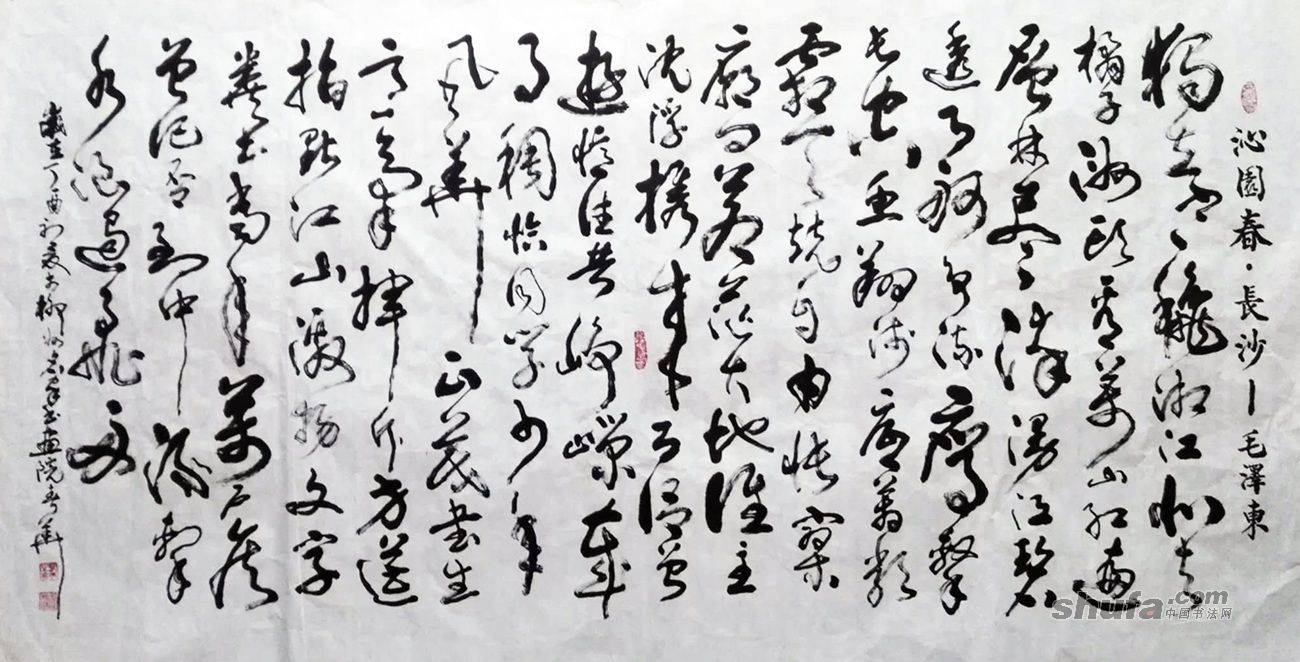 沁園春·長沙— 毛澤東
獨立寒秋湘江北去
橘子洲頭看萬山紅遍
層林盡染漫江碧
透百舸爭流鷹擊
長空魚翔淺底萬類
霜天競自由悵寥
廓問蒼茫大地誰主
沈浮攜來百侶曾
遊憶往昔崢嶸歲
月稠恰同學少年
風華正茂書生
意氣揮斥方遒
指點江山激揚文字
糞土當年萬戶侯
曾記否到中流擊
水浪遏飛舟
歲在丁酉初夏於柳州名家書畫院華
shufa.com
中国书法网